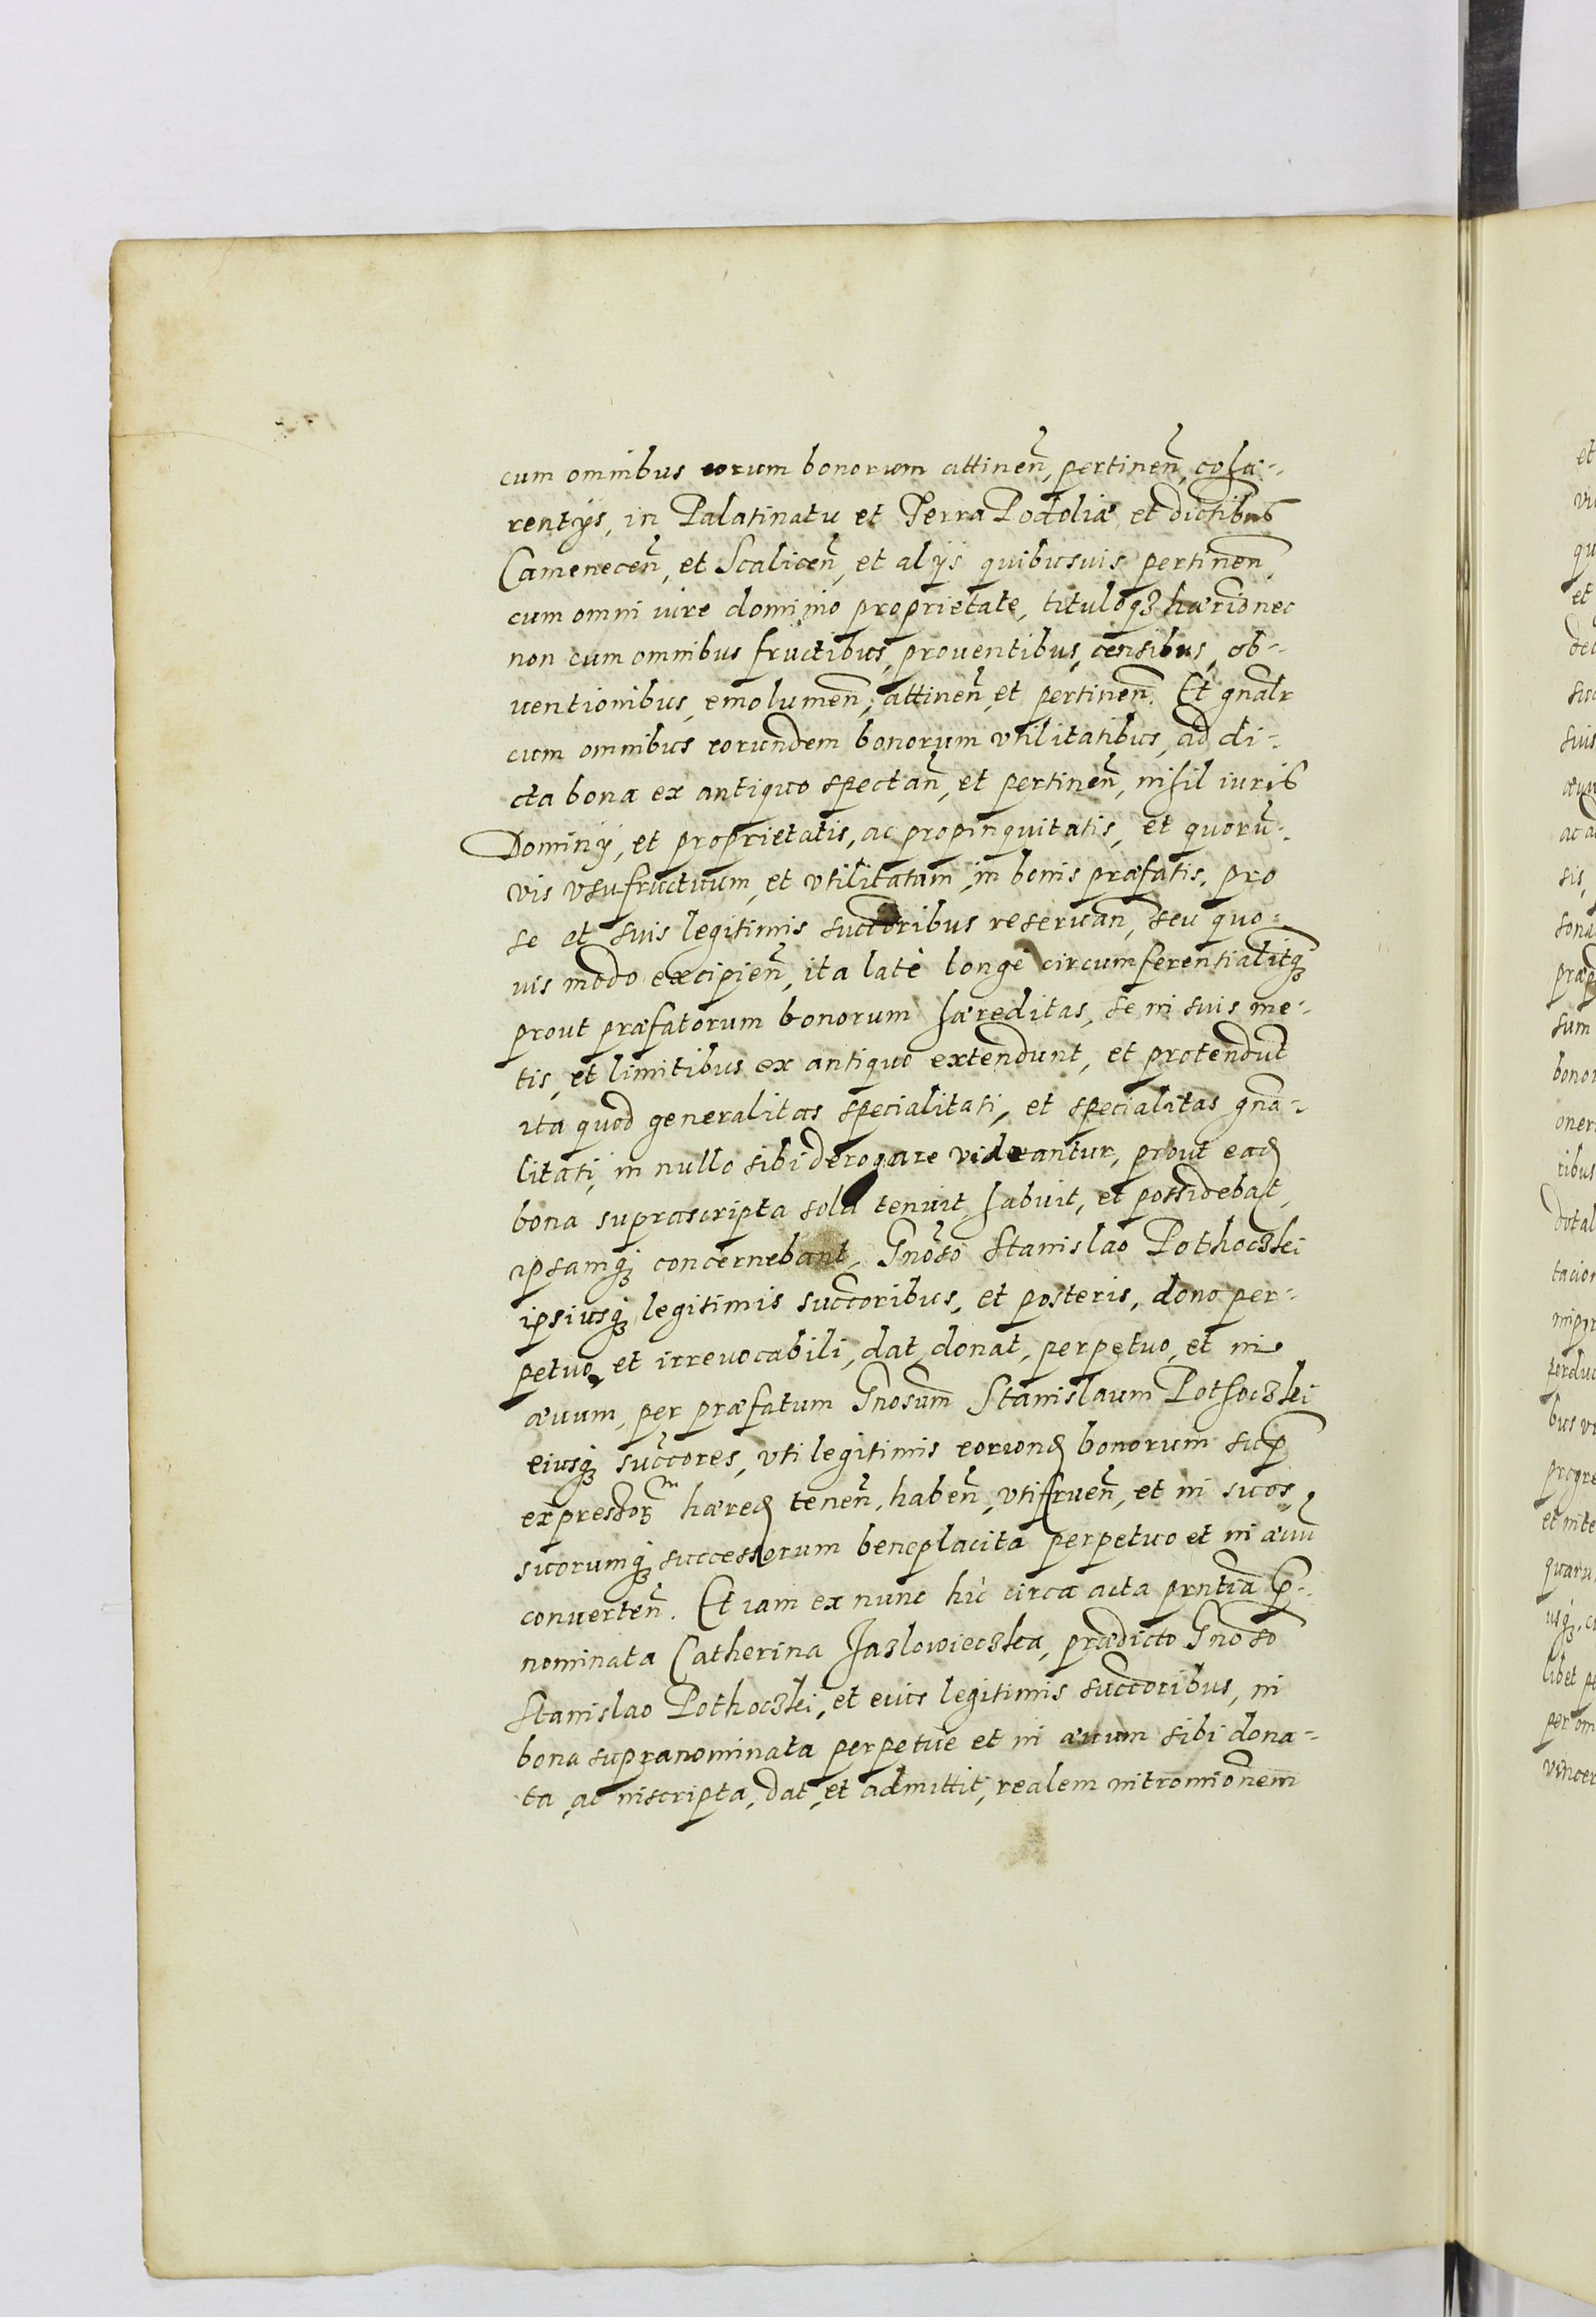 cum omnibus eorum bonorum attinen̄, pertinen̄, cohæ-
rentÿs, in Palatinatu et Terra Podoliæ et dictibus
Camenecen̄, et Scalicen̄, et alÿs quibusuis pertinen̄
cum omni iure dominio proprietate, tituloqȝ hæridnec
non cum omnibus fructibus, prouentibus, censibus, ob-
uentionibus, emolumen̄, attinen̄ et pertinen̄. Et gnālr
cum omnibus eorundem bonorum vtilitatibus, ad di-
cta bona ex antiquo spectan̄, et pertinen̄, nihil iuris
Dominÿ, et proprietatis, ac propinquitatis, et quorū-
vis vsufructuum, et vtilitatum, in bonis præfatis, pro
se et suis legitimis succōribus reseruan̄, seu quo-
uis modo excipien̄, ita latè longè circumferentialitqȝ
prout præfatorum bonorum hæreditas, se in suis me-
tis, et limitibus ex antiquo extendunt, et protendūt
ita quod generalitas specialitati, et specialitas gnā-
litati, in nullo sibi derogare videantur, prout eadꝫ
bona suprascripta sola tenuit habuit, et possidebat,
ipsamqȝ concernebant, Gnōso Stanislao Pothoczkei
ipsiusqȝ legitimis succōribus, et posteris, dono per-
petuo, et irreuocabili, dat donat, perpetuo, et in
æuum, per præfatum Gnōsum Stanislaum Pothoczkei
eiusqȝ succōres, vti legitimis eorundꝫ bonorum sup̄
expressorꝝ hæredꝫ tenen̄, haben̄, vtifruen̄, et in suos,
suorumqȝ successorum beneplacita perpetuo et in æuū
conuerten̄. Et iam ex nunc hìc circa acta prn̄tia p̄-
nominata Catherina Jazlowieczka, prædicto Gnōso
Stanislao Pothoczkei, et eius legitimis succōribus, in
bona supranominata perpetue et in æuum sibi dona-
ta, ac inscripta, dat, et admittit, realem intromiōnem